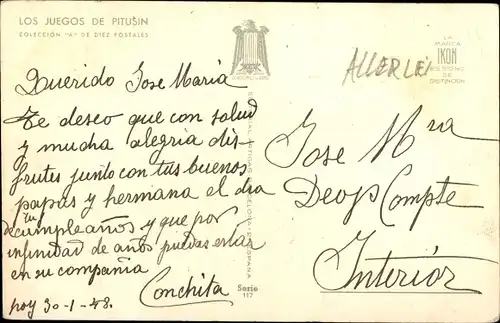 LOS JUEGOS DE PITUSIN
COLECCIÓN "A" DE DIEZ POSTALES
LA
MARCA
IKON
ES SIGNO
DE
DISTINCION
ALLERLEI
Querido Jose Maria
Te deseo que con salud
y mucha alegria dis-
frutes junto con tus buenos
papas y hermana el dia
de tu
cumpleaños y que por
infinidad de años puedas estar
en su compañia
Conchita
hoy 30-1-48.
Serie
117
Jose Mra
Deop Compte
Interior